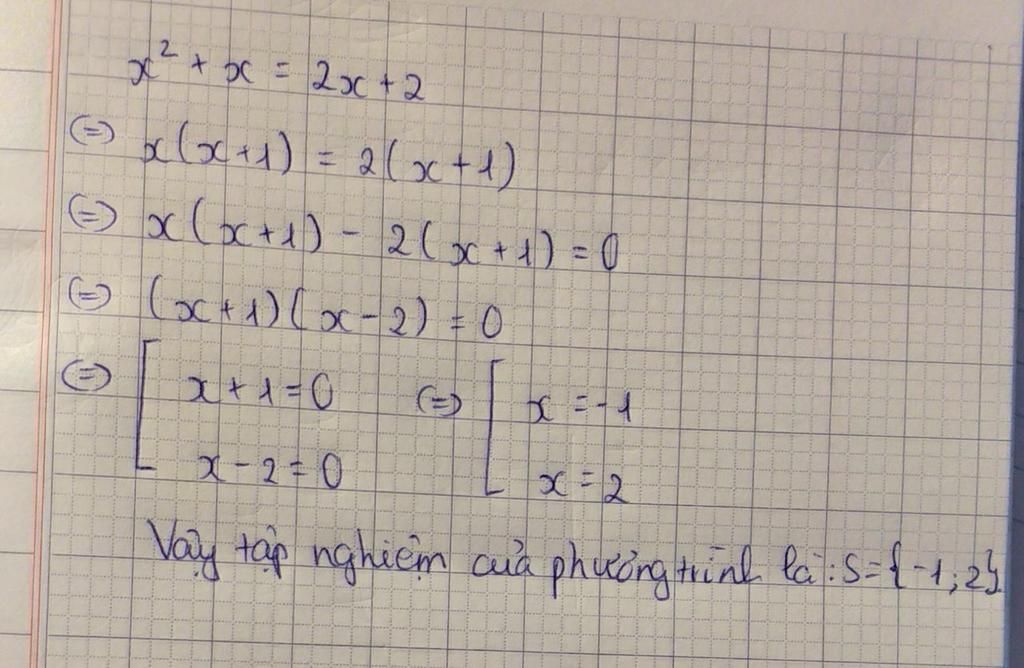 x² + x = 2x + 2
(=) x(x+1) = 2(x+1)
(=) x(x+1) - 2(x+1) = 0
(=) (x+1)(x-2) = 0
(=) [ x + 1 = 0 (=) [ x = -1
x - 2 = 0 x = 2
Vậy tập nghiệm của phương trình là: S = {-1; 2}.